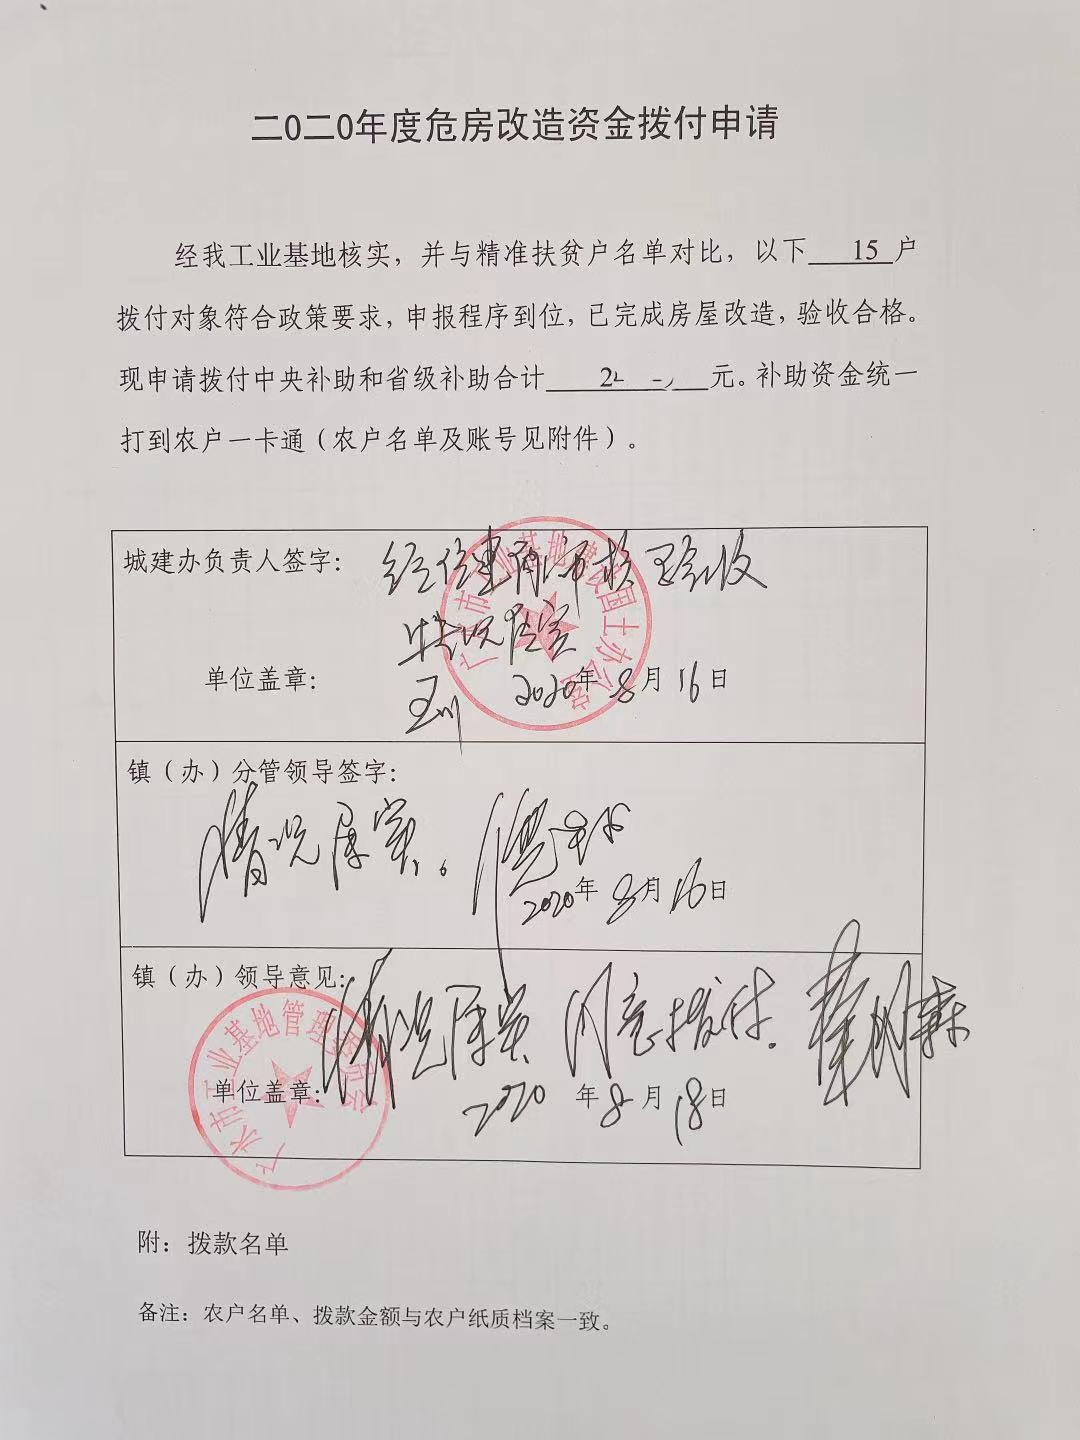 二0二0年度危房改造资金拨付申请
经我工业基地核实，并与精准扶贫户名单对比，以下 15 户
拨付对象符合政策要求，申报程序到位，已完成房屋改造，验收合格。
现申请拨付中央补助和省级补助合计 元。补助资金统一
打到农户一卡通（农户名单及账号见附件）。
城建办负责人签字：
验收
情况属实
单位盖章：
2020年8月16日
广水市工业基地建设国土办公室
镇（办）分管领导签字：
情况属实。
2020年8月16日
镇（办）领导意见：
情况属实 同意拨付。
单位盖章：
2020年8月18日
广水市工业基地管理委员会
附：拨款名单
备注：农户名单、拨款金额与农户纸质档案一致。